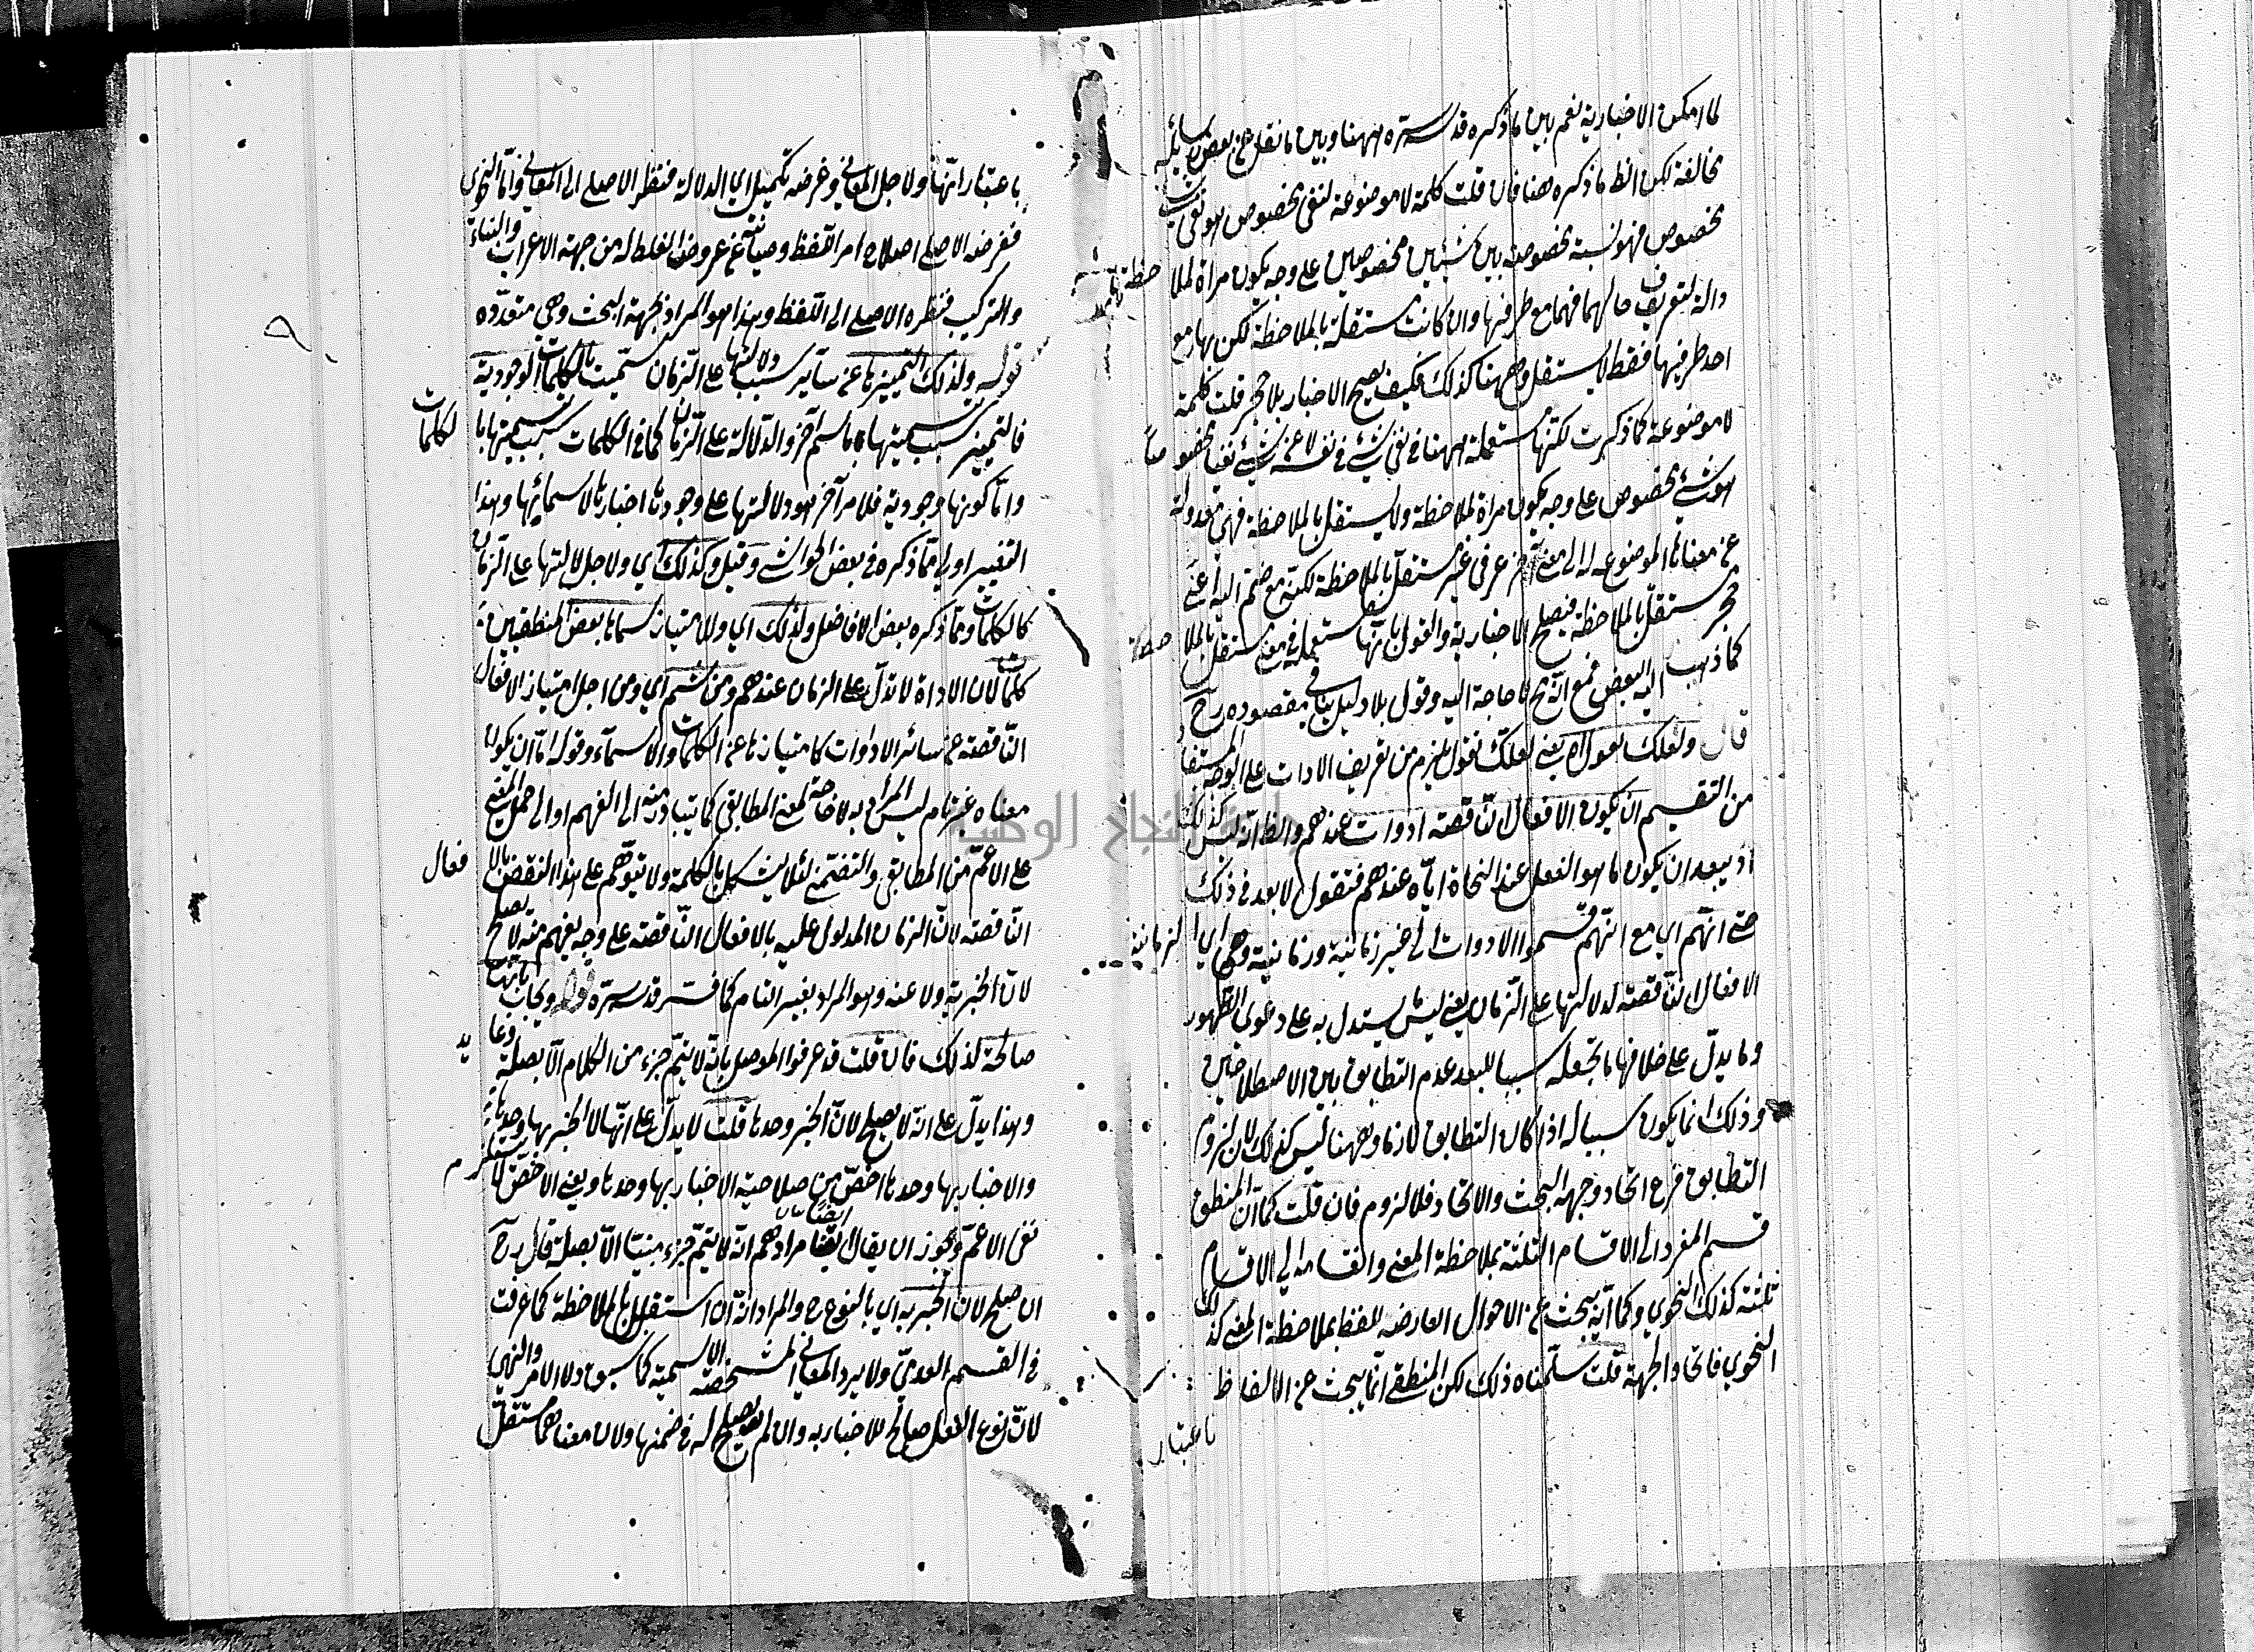 لما امكن الاخبارية نعم بين ما ذكره قدسسره ههنا وبين ما نقل عن بعض رسائله
مخالفة لكن الظ ما ذكره هنا فان قلت كلمة لا موضوعة لنفى مخصوص هو نفى شئ
مخصوص فهو نسبة مخصوصة بين شيئين مخصوصين على وجه يكون مراة لملاحظة
دالة لتعريف حالهما فهما مع طرفيها وان كانت مستقلة بالملاحظة لكن بها مع
احد طرفيها فقط لا يستقل وههنا كذلك فكيف يصح الاخبار بلا حجر قلت كلمة
لا موضوعة كما ذكرت لكنها مستعملة ههنا فى نفى شئ فى نفسه لا عن شئ نفيا مخصوصاً
بشئ مخصوص على وجه يكون مراة لملاحظة ولا يستقل بالملاحظة فهى معدولة
عن معناها الموضوعه له الى معنى آخر عرفى غير مستقل بالملاحظة لكنه مع ضم اليه اعنى
حجر مستقل بالملاحظة فيصلح الاخبارية والقول بانها مستعملة فى معنى مستقل بالملاحظة
كما ذهب اليه البعض فمع انه لا حاجة اليه وقول بلا دليل ينافى مقصوده رح
قال ولعلك تقول اه يعنى لعلك تقول يلزم من تعريف الادات على الوجه المستفاد
من التقسيم ان يكون الافعال الناقصة ادوات عندهم والظ انه ليس كذلك
اذ يبعد ان يكون ما هو الفعل عند النحاة اياه عندهم فنقول لا بعد فى ذلك
حتى انهم اى مع انهم قسموا الادوات الى غير زمانية وزمانية وهى اى الزمانية
الافعال الناقصة لدلالتها على الزمان يعنى ليس يستدل به على دعوى الظهور
وما يدل على خلافها ما تجعله سببا للبعد عدم التطابق بين الاصطلاحين
وذلك انما يكون سببا له اذا كان التطابق لازما وههنا ليس كذلك لان لزوم
التطابق فرع اتحاد وجهة البحث والاتحاد فلا لزوم فان قلت كما ان المنطقى
قسم المفرد الى الاقسام الثلثة بملاحظة المعنى وانقسامه الى الاقسام
ثلثة كذلك النحوى وكما انه يبحث عن الاحوال العارضه للفظ بملاحظة المعنى كذلك
النحوى فاتحاد الجهة قلت سلمناه ذلك لكن المنطقى انما يبحث عن الالفاظ
باعتبار
باعتبار انها ولاجل المعانى وغرضه تكميل الدلالة فنظر الاصلى الى المعانى واما النحوى
فغرضه الاصلى اصلاح امر اللفظ وصيانته عن عروض الغلط له من جهة الاعراب والبناء
والتركيب فنظره الاصلى الى اللفظ وهذا هو المراد بجهة البحث وهى متعدده
قوله ولذلك التمييز ما عن سائر سبب دلالتها على الزمان سميت بالكلمات الوجودية
فالتمييز سبب تسميتها باسم آخر والدلالة على الزمان كما فى الكلمات سبب تسميتها بالكلمات
واما كونها وجودية فلامر آخر هو دلالتها على وجود ها اخبارها لاسمائها وهذا
التفسير اولى مما ذكره فى بعض الحواشى وقيل وكذلك اى ولاجل دلالتها على الزمان
كالكلمات ومما ذكره بعض الافاضل ولذلك اى وللامتياز سماها بعض المنطقيين
كلمات لان الاداة لا تدل على الزمان عندهم ومن ثم اى ومن اجل امتياز الافعال
الناقصة عن سائر الادوات كامتيازها عن الكلمات والاسماء وقوله اما ان يكون
معناه غير تام ليس المراد به خاصة المعنى المطابقى كما يتبادر منه الى الفهم او الى حمل المعنى
على الاعم من المطابقى والتضمنى لئلا يشكل بالكلمة ولا يتوهم على هذا النقض بالافعال
الناقصة لان الزمان المدلول عليه بالافعال الناقصة على وجه يفهم منه لا يصلح
لان الخبر به ولا عنه وهو المراد بغير التام كما فسر قدسسره ويجاب بانها
صالحة لذلك فان قلت قد عرفوا الموصل بانه لا يتم جزء من الكلام الا بصلة وعائد
وهذا يدل على انه لا يصلح لان الخبر وحدها قلت لا يدل على انها لا الخبر بها وحدها
والاخبار بها وحدها اخص من صلاحية الاخبار بها وحدها ونفى الاخص لا يستلزم
نفى الاعم ويجوز ان يقال ايضا مرادهم انه لا يتم جزء مبنيا الا بصلة قال رح
ان صلح لان الخبر به اى بالنوع ح والمراد انه ان استقل بالملاحظة كما عرفت
فى القسم العدمى ولا يرد المعانى المشخصة الاسمية كما سبق ولا الامر والنهى
لان نوع الفعل صالح للاخبار به وان لم يصلح له فى ضمنها ولان معناهما مستقل